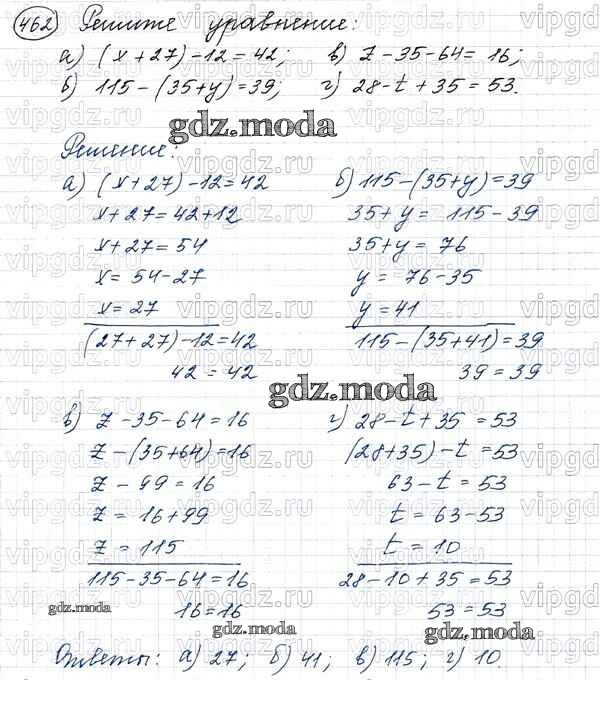 462 Решите уравнение:
а) (x + 27) - 12 = 42; в) z - 35 - 64 = 16;
б) 115 - (35 + y) = 39; г) 28 - t + 35 = 53.
gdz.moda
Решение:
а) (x + 27) - 12 = 42
x + 27 = 42 + 12
x + 27 = 54
x = 54 - 27
x = 27
(27 + 27) - 12 = 42
42 = 42
б) 115 - (35 + y) = 39
35 + y = 115 - 39
35 + y = 76
y = 76 - 35
y = 41
115 - (35 + 41) = 39
39 = 39
gdz.moda
в) z - 35 - 64 = 16
z - (35 + 64) = 16
z - 99 = 16
z = 16 + 99
z = 115
115 - 35 - 64 = 16
16 = 16
г) 28 - t + 35 = 53
(28 + 35) - t = 53
63 - t = 53
t = 63 - 53
t = 10
28 - 10 + 35 = 53
53 = 53
gdz.moda
gdz.moda
gdz.moda
Ответы: а) 27; б) 41; в) 115; г) 10.
vipgdz.ru